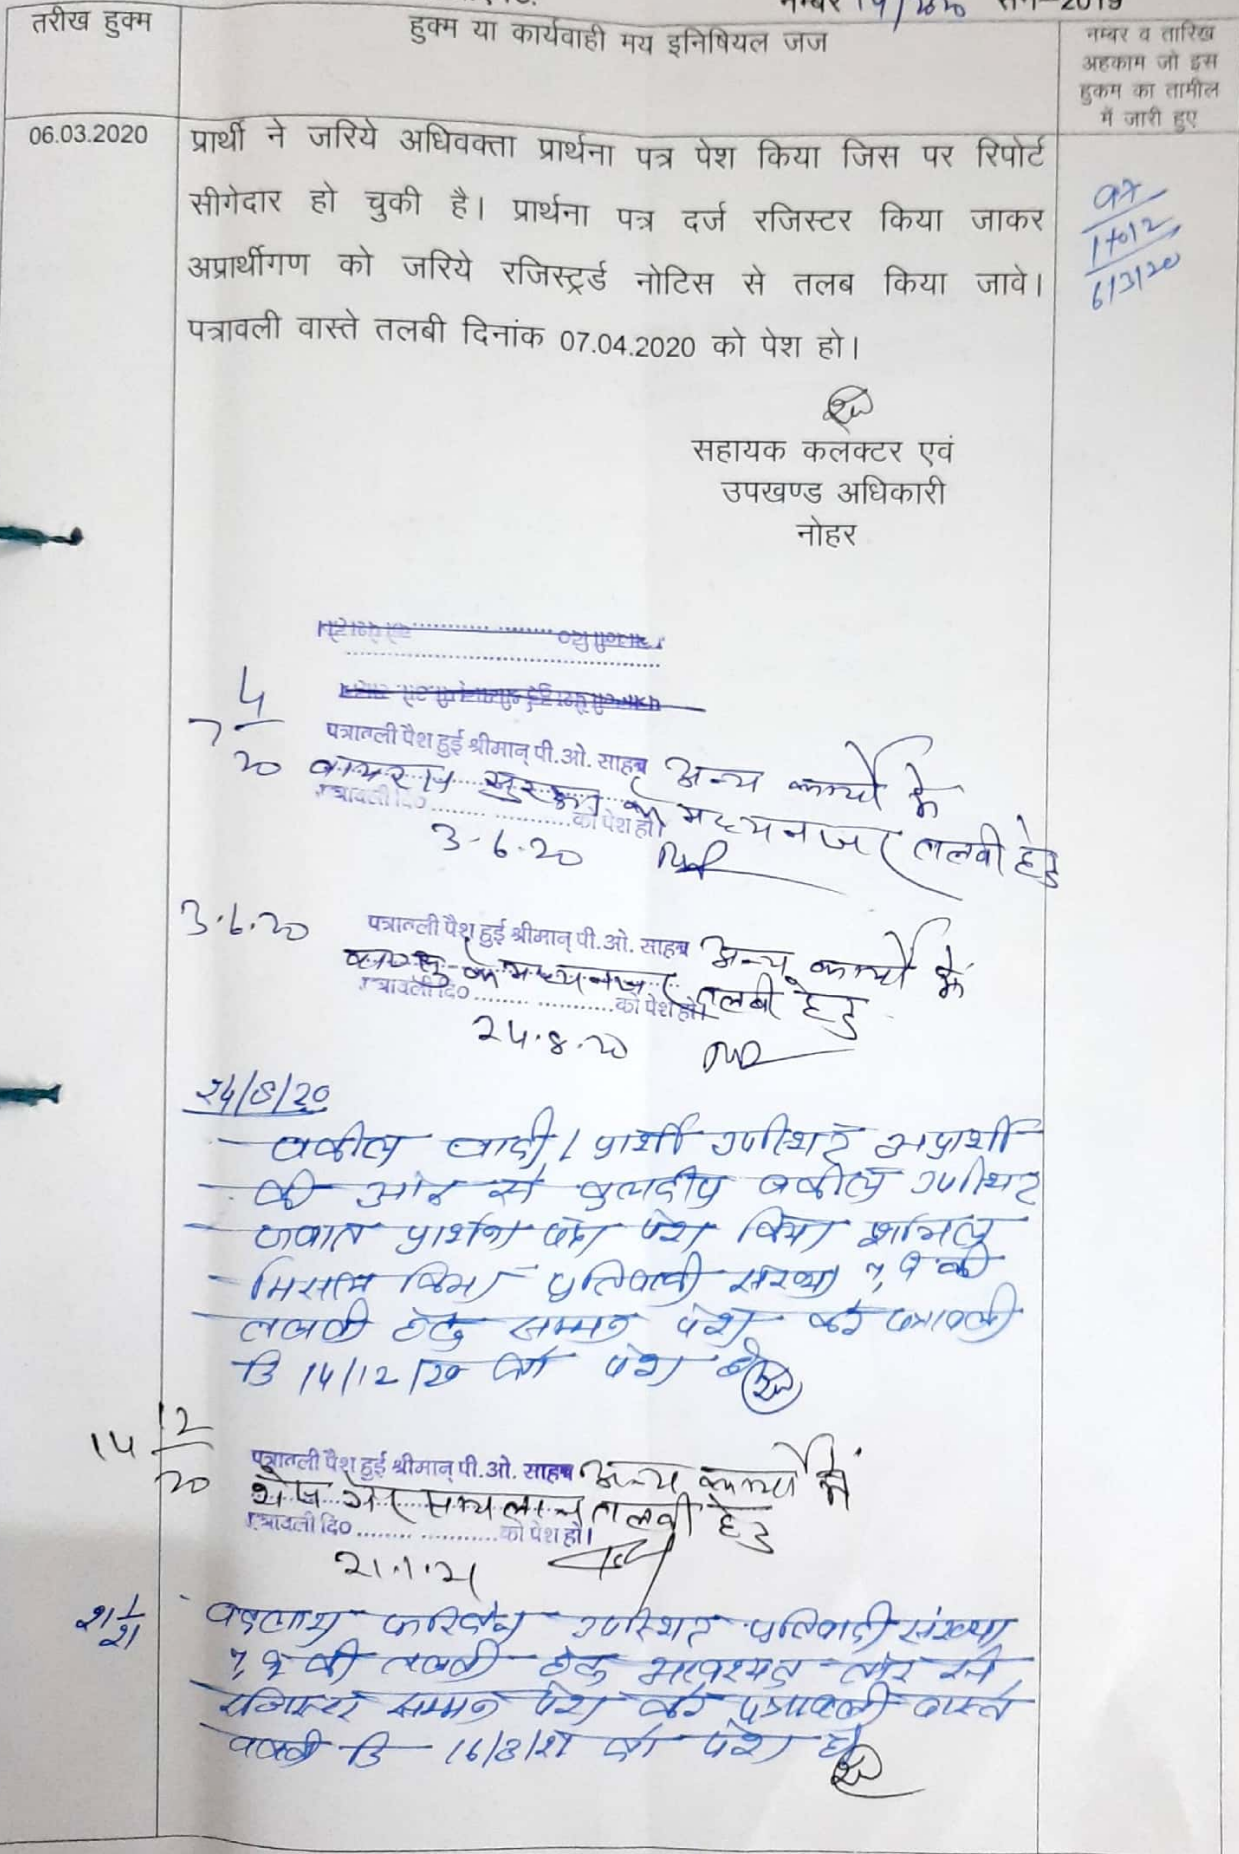 नम्बर 14/2020 सन-2019
तरीख हुक्म
हुक्म या कार्यवाही मय इनिषियल जज
नम्बर व तारिख
अहकाम जो इस
हुकम का तामील
में जारी हुए
06.03.2020
प्रार्थी ने जरिये अधिवक्ता प्रार्थना पत्र पेश किया जिस पर रिपोर्ट
सीगेदार हो चुकी है। प्रार्थना पत्र दर्ज रजिस्टर किया जाकर
अप्रार्थीगण को जरिये रजिस्ट्रर्ड नोटिस से तलब किया जावे।
पत्रावली वास्ते तलबी दिनांक 07.04.2020 को पेश हो।
6/3/20
सहायक कलक्टर एवं
उपखण्ड अधिकारी
नोहर
7 4/20
पत्रावली पैश हुई श्रीमान् पी.ओ. साहब अन्य कार्यो के
वायरस सुरक्षा के मध्यनजर तलबी हेतु
पत्रावली दि० को पेश हो।
3.6.20
3.6.20
पत्रावली पैश हुई श्रीमान् पी.ओ. साहब अन्य कार्यो के
के मध्यनजर तलबी हेतु
पत्रावली दि० को पेश हो।
24.8.20
24/8/20
वकील वादी/प्रार्थी उपस्थित अप्रार्थी
की ओर से कुलदीप वकील उपस्थित
जवाब प्रार्थना पत्र पेश किया शामिल
मिसल किया प्रतिवादी संख्या 7, 9 की
तलबी हेतु सम्मन पेश करे पत्रावली
दि 14/12/20 को पेश हो
14 12/20
पत्रावली पैश हुई श्रीमान् पी.ओ. साहब अन्य कार्यो में
शेष गैर सायलान तलबी हेतु
पत्रावली दि० को पेश हो।
21.1.21
21 1/21
वकलाय फरिकेन उपस्थित प्रतिवादी संख्या
7, 9 की तलबी हेतु आवश्यक तौर से
रजिस्टर्ड सम्मन पेश करे पत्रावली वास्ते
तलबी दि 16/3/21 को पेश हो